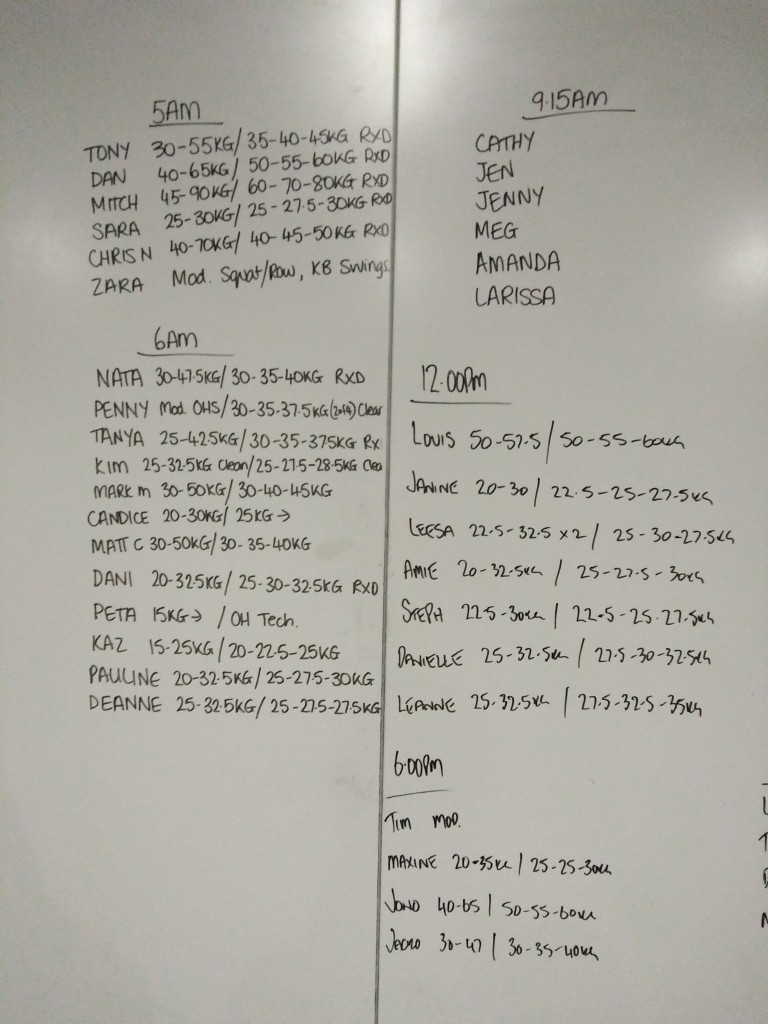 5AM
TONY 30-55KG/ 35-40-45KG RXD
DAN 40-65KG/ 50-55-60KG RXD
MITCH 45-90KG/ 60-70-80KG RXD
SARA 25-30KG/ 25-27.5-30KG RXD
CHRIS N 40-70KG/ 40-45-50KG RXD
ZARA Mod. Squat/Row, KB Swings
6AM
NATA 30-47.5KG/ 30-35-40KG RXD
PENNY Mod. OHS/30-35-37.5KG Clean
TANYA 25-42.5KG/30-35-375KG Rx
KIM 25-32.5KG Clean/25-27.5-28.5KG Clea
MARK M 30-50KG/ 30-40-45KG
CANDICE 20-30KG/ 25KG →
MATT C 30-50KG/30-35-40KG
DANI 20-32.5KG/ 25-30-32.5KG RXD
PETA 15KG → / OH Tech.
KAZ 15-25KG/20-22.5-25KG
PAULINE 20-32.5KG/25-27.5-30KG
DEANNE 25-32.5KG/ 25-27.5-27.5KG
9.15AM
CATHY
JEN
JENNY
MEG
AMANDA
LARISSA
12.00pm
LOUIS 50-57.5 / 50-55-60KG
JANINE 20-30 / 22.5-25-27.5KG
LEESA 22.5-32.5 x2 / 25-30-27.5KG
AMIE 20-32.5KG / 25-27.5-30KG
STEPH 22.5-30KG / 22.5-25-27.5KG
DANIELLE 25-32.5KG / 27.5-30-32.5KG
LEANNE 25-32.5KG / 27.5-32.5-35KG
6.00pm
TIM MOD.
MAXINE 20-35KG / 25-25-30KG
JONO 40-65 / 50-55-60KG
30-47 / 30-35-40KG